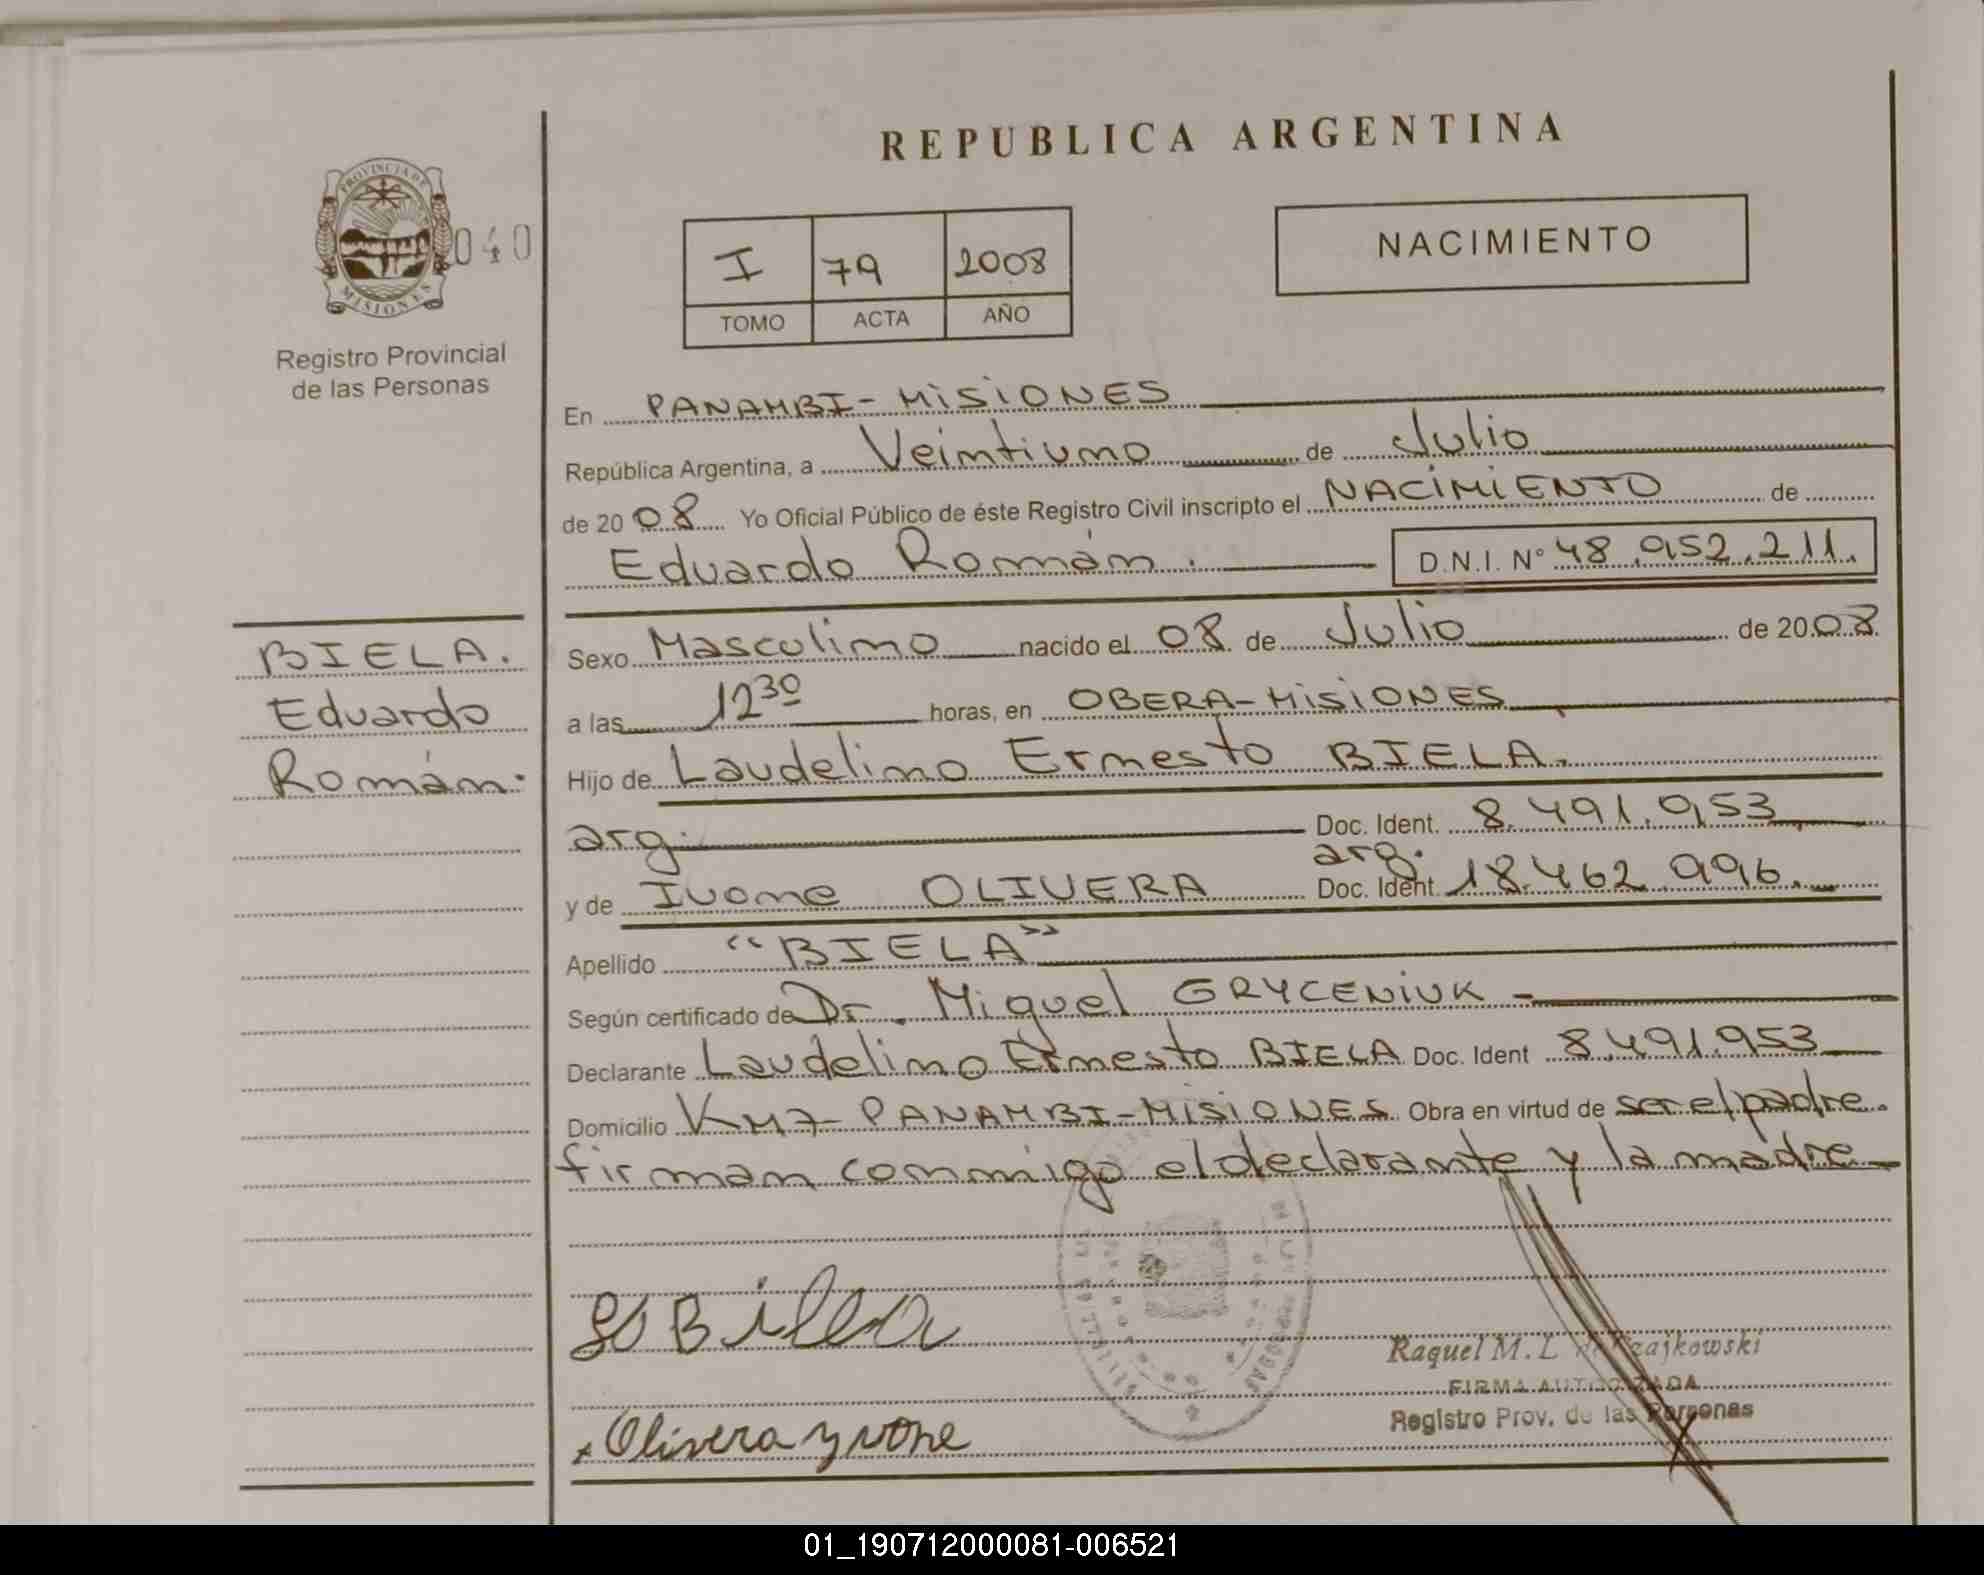 REPUBLICA ARGENTINA
PROVINCIA DE
MISIONES
040
Registro Provincial
de las Personas
I 79 2008
TOMO ACTA AÑO
NACIMIENTO
En PANAMBI - MISIONES
República Argentina, a Veintiuno de Julio
de 2008 Yo Oficial Público de éste Registro Civil inscripto el NACIMIENTO de
Eduardo Román. D.N.I. Nº 48.952.211.
BIELA.
Eduardo
Román.
Sexo Masculino nacido el 08 de Julio de 2008
a las 12 30 horas, en OBERA - MISIONES
Hijo de Laudelino Ernesto BIELA.
arg. Doc. Ident. 8.491.953
arg.
y de Ivone OLIVERA Doc. Ident. 18.462.996.
Apellido "BIELA"
Según certificado de Dr. Miguel GRYCENIUK -
Declarante Laudelino Ernesto BIELA Doc. Ident 8.491.953
Domicilio KM7 - PANAMBI - MISIONES Obra en virtud de ser el padre.
firman conmigo el declarante y la madre
Raquel M. L. de Czajkowski
FIRMA AUTORIZADA
Registro Prov. de las Personas
Olivera yvone
01_190712000081-006521